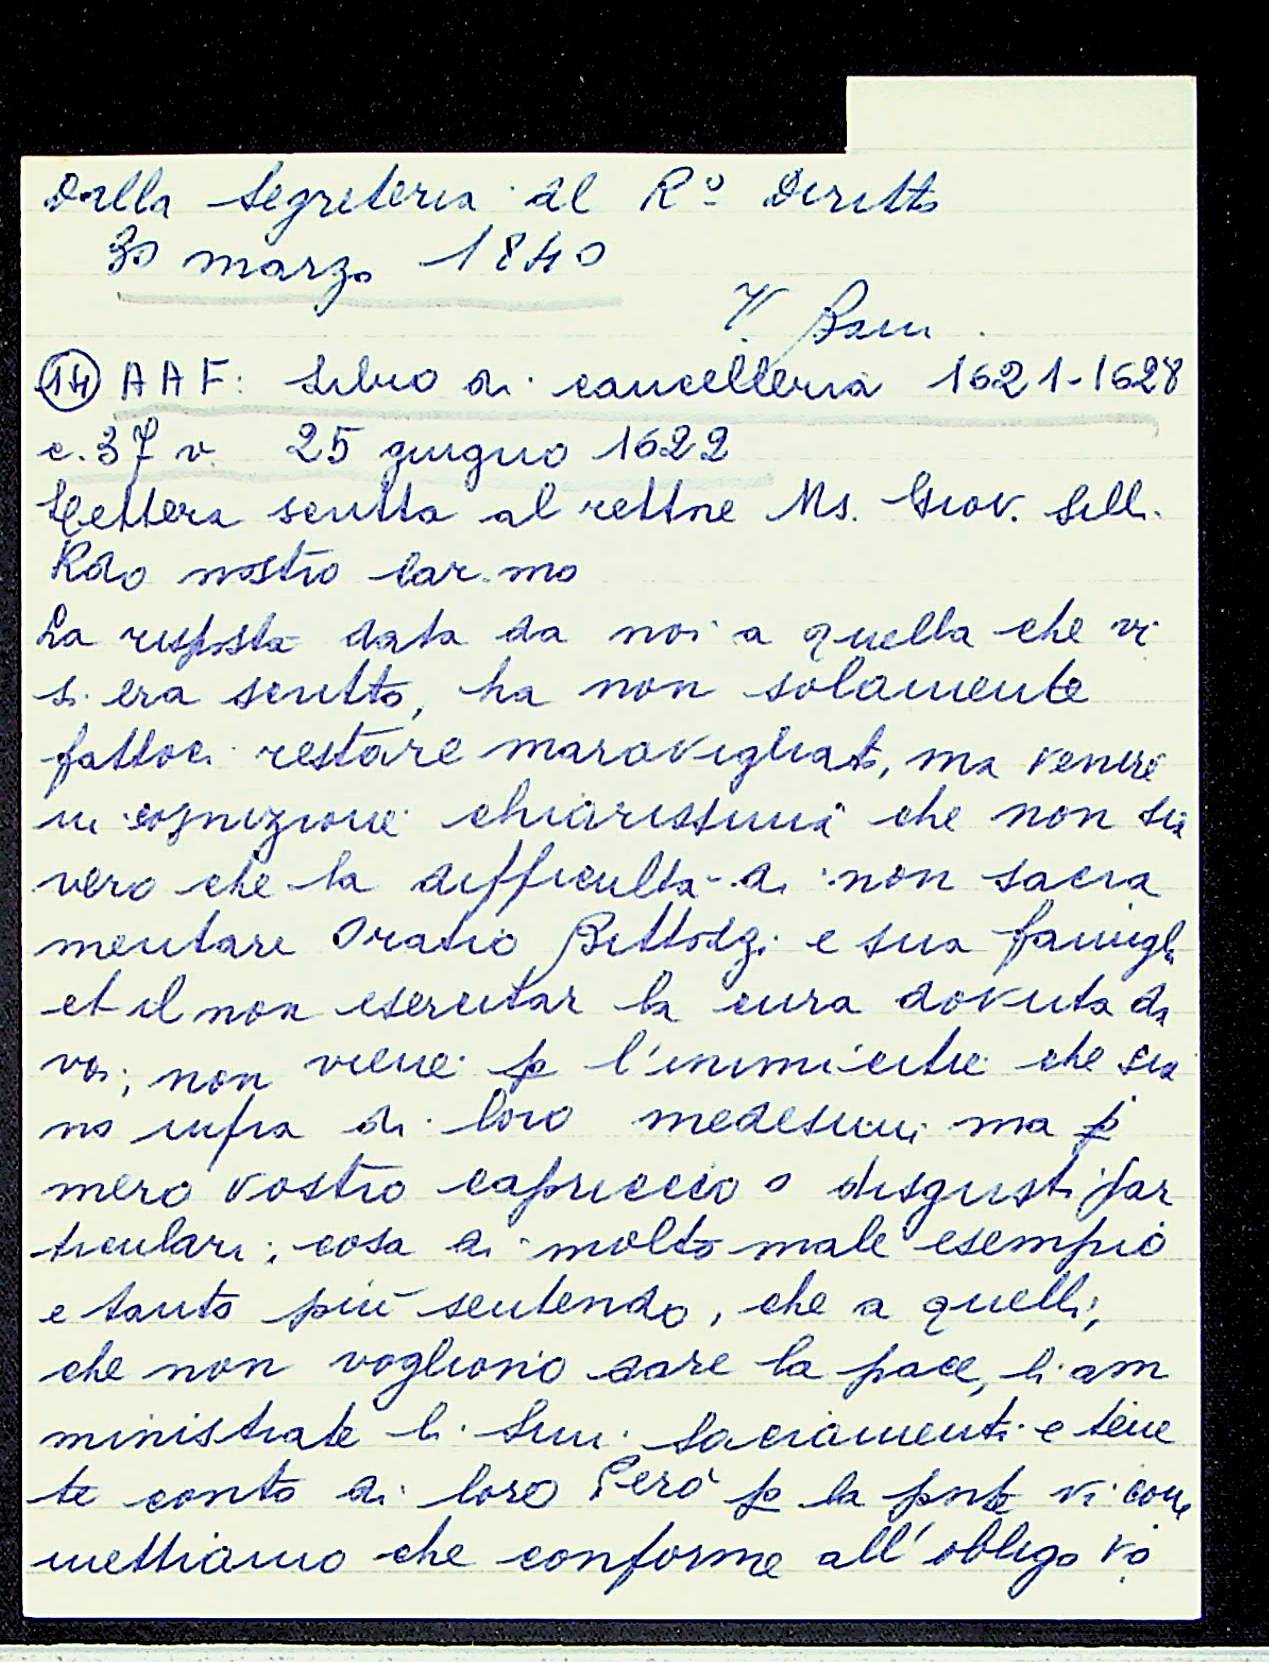 Dalla Segreteria del R.º Diritto
30 marzo 1840
V. Bani
(14) AAF: Libro di cancelleria 1621-1628
c. 37 v. 25 giugno 1622
Lettera scritta al rettore Ms. Giov. Lelli.
Rdo nostro car.mo
La risposta data da noi a quella che vi
si era scritto, ha non solamente
fattoci restare maravigliati, ma venire
in cognizione chiarissima che non sia
vero che la difficultà di non sacra
mentare Oratio Bettolzi e sua famigl
et il non esercitar la cura dovuta da
voi, non viene p l'inimicitie che sia
no infra di loro medesimi ma p
mero vostro capriccio o disgusti par
ticulari; cosa di molto male esempio
e tanto più sentendo, che a quelli,
che non vogliono dare la pace, li am
ministrate li Smi. Sacramenti e tene
te conto di loro Però p la pnte vi com
mettiamo che conforme all'obligo vo